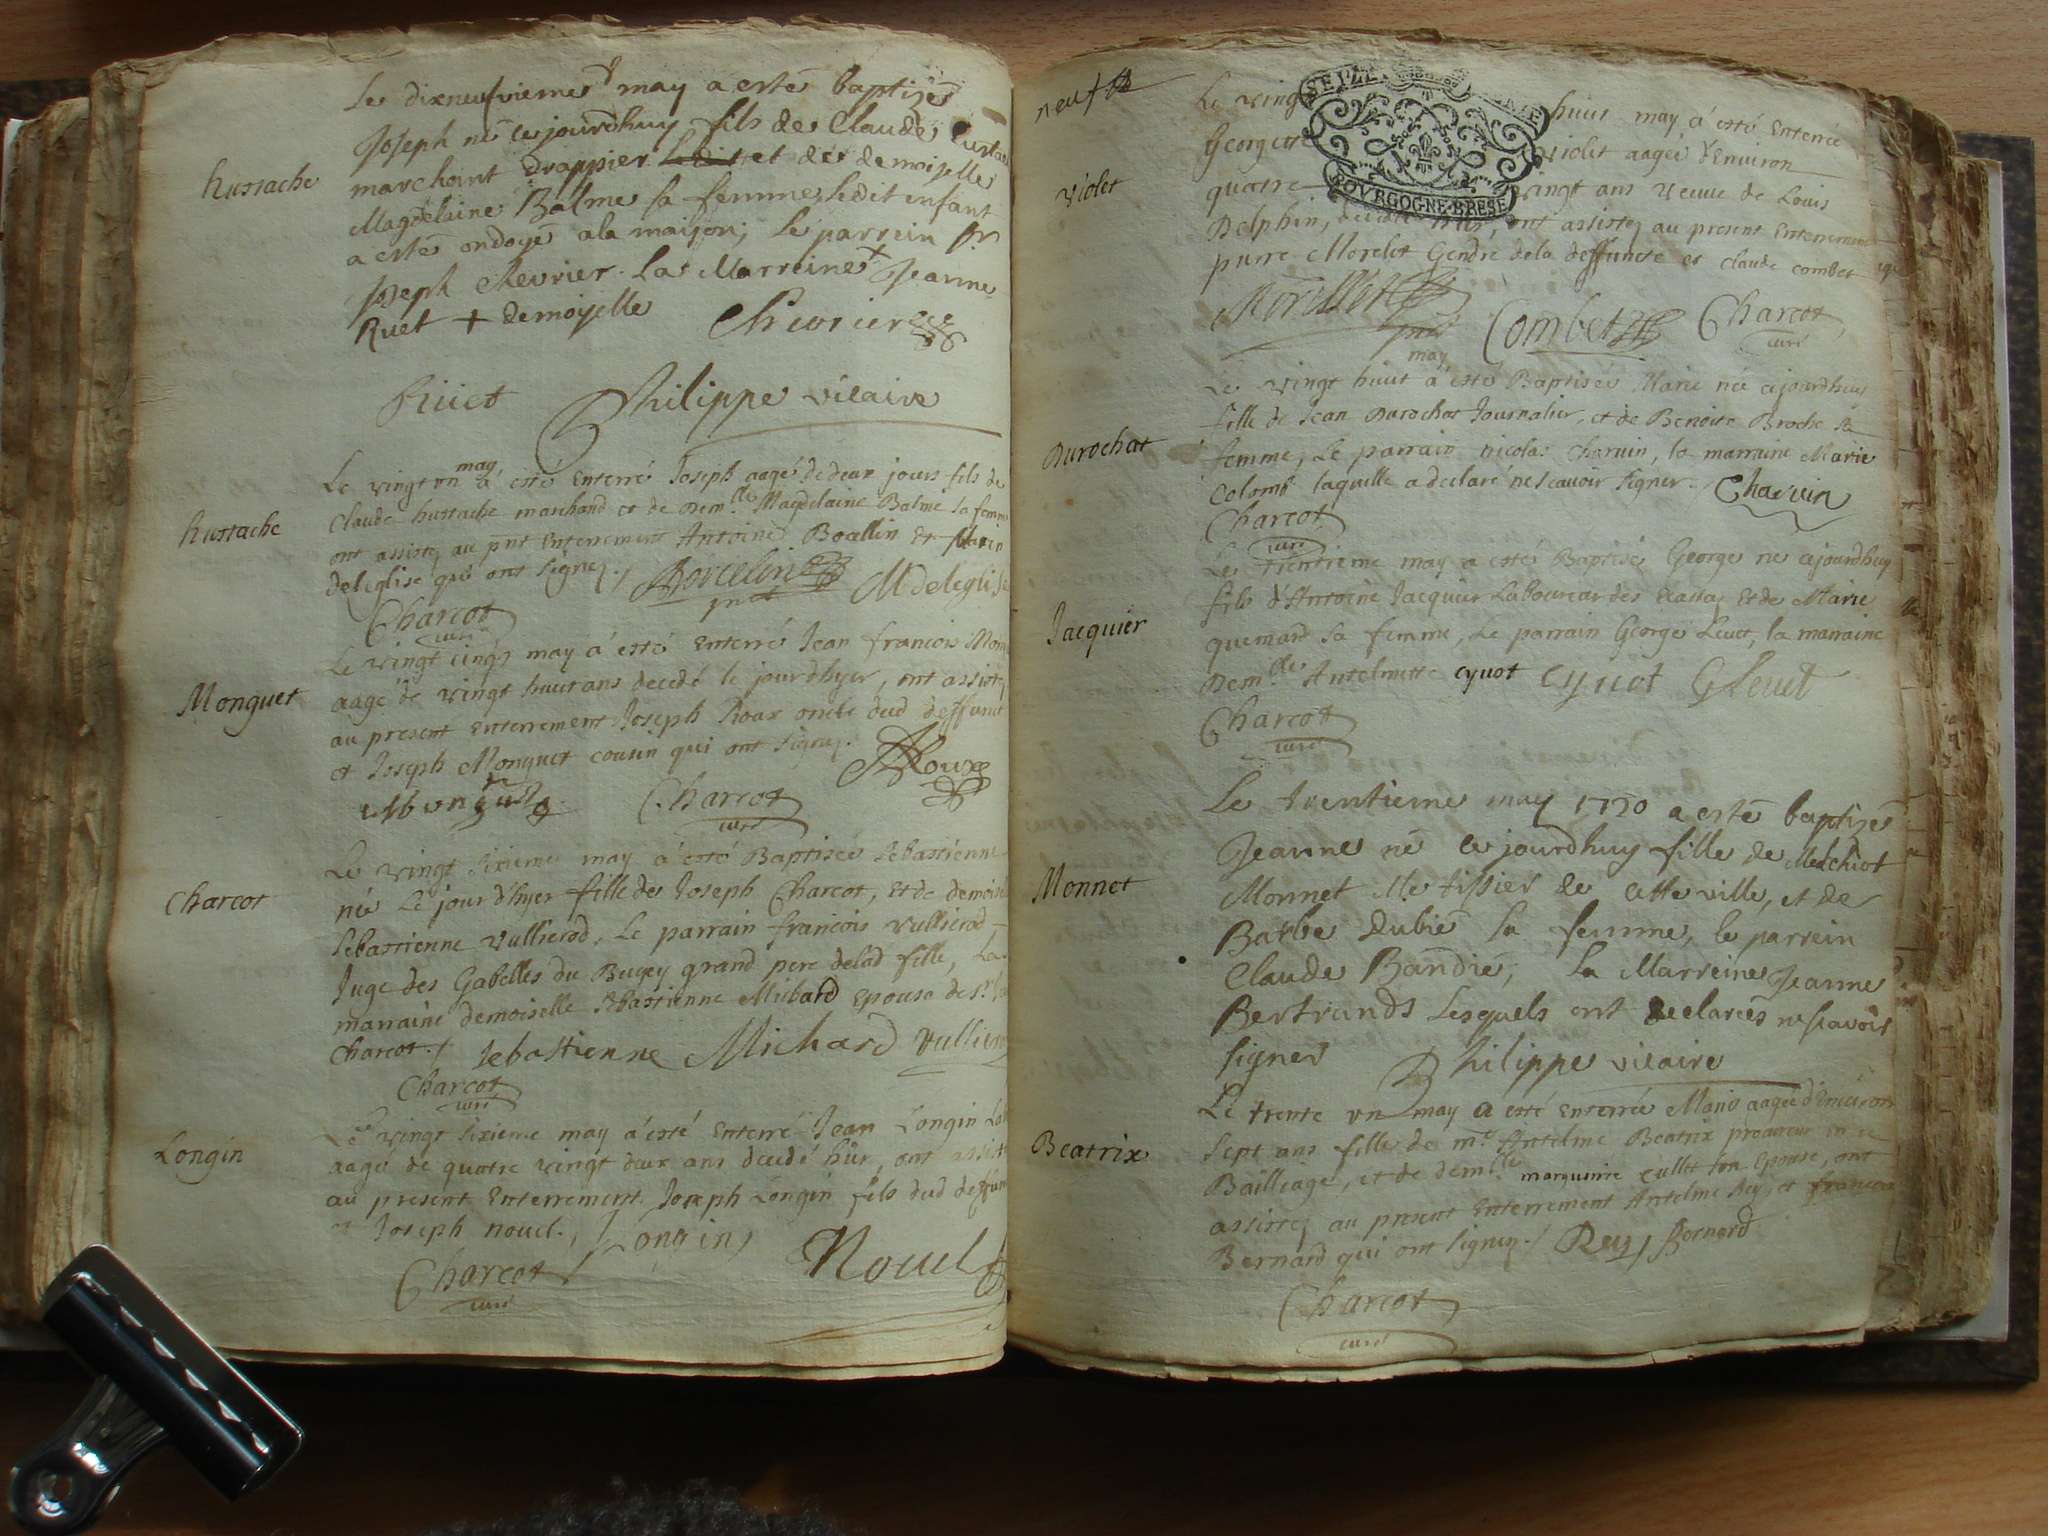 hustache
Le dixneufvieme may a esté baptizé
Joseph né ce jourdhuy fils de Claude
marchant drappier et de demoiselle
Magdelaine Balme sa femme, ledit enfant
a esté ondoyé a la maison; le parrein sr
Joseph Chevrier. La Marreine Jeanne
Ruet + demoiselle Chevrier
Ruet Philippe vicaire
hustache
Le vingt un may a esté Enterré Joseph aagé de deux jours fils de
Claude hustache marchand et de Demlle Magdelaine Balme sa femme
ont assistez au pnt Enterrement Antoine et
deleglise qui ont signez./ M deleglise
Charcot
curé
Monguet
Le vingt cinq may a esté Enterré Jean francois
aagé de vingt huit ans decedé le jourdhyer, ont assistez
au present Enterrement Joseph Roux oncle dud deffunct
et Joseph Monguet cousin qui ont signez.
Roux
Monguet Charcot
curé
Charcot
Le vingt sixieme may a esté Baptisée Sebastienne
née Le jourdhyer fille de Joseph Charcot, et de
Sebastienne Vullierod, Le parrain francois Vullierod
Juge des Gabelles du Bugey grand pere delad fille, La
marraine demoiselle Sebastienne Michard Epouse de sr
Charcot./ Sebastienne Michard
Charcot
curé
Longin
Le vingt sixieme may a esté Enterré Jean Longin
aagé de quatre vingt deux ans decedé hier, ont
au present Enterrement Joseph Longin fils dud
et Joseph nouel./ Longin Nouel
Charcot
curé
neuf
violet
Le huit may a esté Enterrée
Georgette violet aagée d'Environ
quatre vingt ans veuve de Louis
Delphin, ont assistez au present Enterrement
pierre Morelot Gendre de la deffuncte et Claude combet
Combet Charcot
curé
Durochat
may
Le vingt huit a esté Baptisée Marie née cejourdhuy
fille de Jean Durochat Journalier, et de Benoite Broche sa
femme, Le parrain nicolas Charvin, la marraine Marie
Colomb laquelle a declaré ne scavoir signer. Charvin
Charcot
curé
Jacquier
Le trentieme may a esté Baptisé George né cejourdhuy
fils d'Antoine Jacquier Laboureur des et de Marie
quemard sa femme, Le parrain George Levet, la marraine
Demlle Antelmette cyvot cyvot G Levet
Charcot
curé
Monnet
Le trentieme may 1730 a esté baptizée
Jeanne né ce jourdhuy fille de Melchiot
Monnet Me tissier de cette ville, et de
Barbe dubié sa femme, le parrein
Claude Bandie, La Marreine Jeanne
Bertrands Lesquels ont declarées ne scavoir
signer Philippe vicaire
Beatrix
Le trente un may a esté Enterrée Marie aagée d'Environ
Sept ans fille de me Antelme Beatrix procureur en ce
Bailliage, et de demlle marguerite cullet son Epouse, ont
assistez au present Enterrement Antelme Rey, et francois
Bernard qui ont signez./ Rey Bernard
Charcot
curé